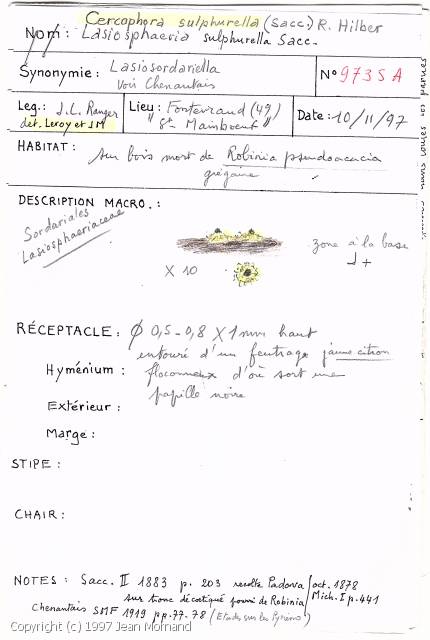 Cercophora sulphurella (Sacc.) R. Hilber
Nom: Lasiosphaeria sulphurella Sacc.
Synonymie: Lasiosordariella
voir Chenantais
N° 973 S A
Leg.: J.L. Ranger
det. Leroy et JM
Lieu: Fontevraud (49)
"St Mainboeuf"
Date: 10/11/97
HABITAT:
sur bois mort de Robinia pseudoacacia
grégaire
DESCRIPTION MACRO.:
Sordariales
Lasiosphaeriaceae
X 10
zone à la base
RÉCEPTACLE: Ø 0,5-0,8 X 1 mm haut
entouré d'un feutrage jaune citron
Hyménium: floconneux d'où sort une
papille noire
Extérieur:
Marge:
STIPE:
CHAIR:
NOTES: Sacc. II 1883 p. 203 recolte Padova oct. 1878
sur tronc décortiqué pourri de Robinia Mich. I p. 441
Chenantais SMF 1919 pp. 77-78 (Etudes sur les Pyreno)
Copyright (c) 1997 Jean Mornand